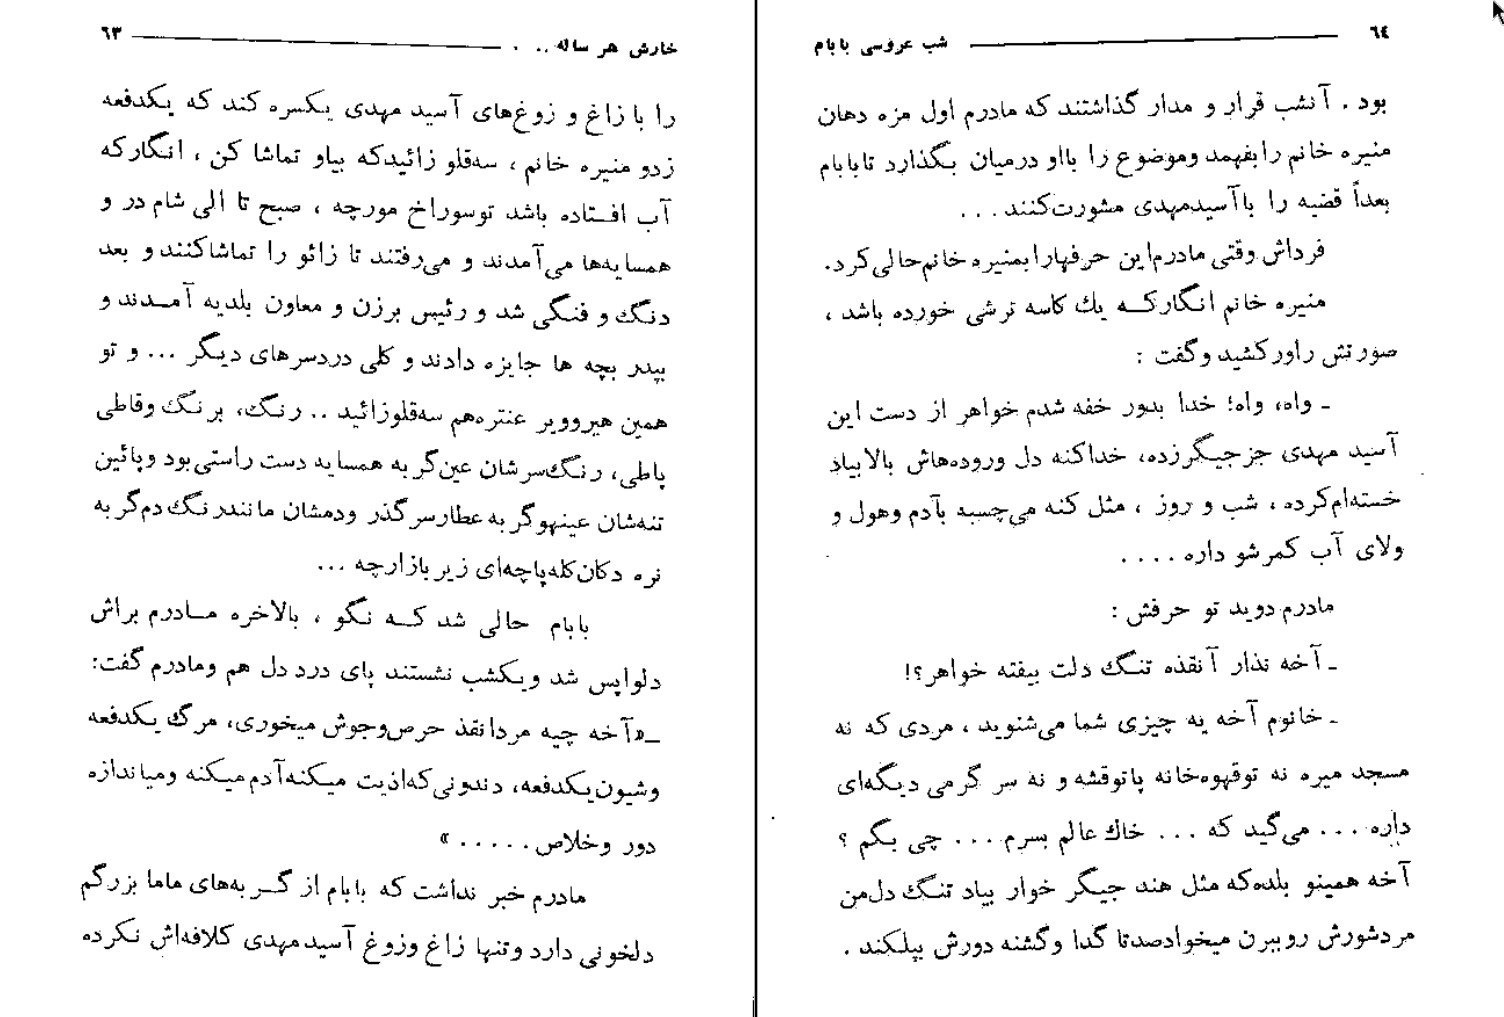 خارش هر ساله .. . ٦٣
را با زاغ و زوغ‌های آسید مهدی یکسره کند که یکدفعه
زدو منیره خانم ، سه‌قلو زائیدکه بیاو تماشا کن ، انگارکه
آب افتاده باشد توسوراخ مورچه ، صبح تا الی شام در و
همسایه‌ها می‌آمدند و می‌رفتند تا زائو را تماشاکنند و بعد
دنگ و فنگی شد و رئیس برزن و معاون بلدیه آمدند و
بپدر بچه ها جایزه دادند و کلی دردسرهای دیگر ... و تو
همین هیروویر عنتره‌هم سه‌قلوزائید .. رنگ، برنگ وقاطی
پاطی، رنگ‌سرشان عین‌گربه همسایه دست راستی‌بود وپائین
تنه‌شان عینهوگربه عطارسرگذر ودمشان مانندرنگ دم‌گربه
نره دکان‌کله‌پاچه‌ای زیربازارچه ...
بابام حالی شد که نگو ، بالاخره مادرم براش
دلواپس شد ویکشب نشستند پای درد دل هم ومادرم گفت:
ـ«آخه چیه مردانقذ حرص‌وجوش میخوری، مرگ یکدفعه
وشیون‌یکدفعه، دندونی‌که‌اذیت میکنه‌آدم‌میکنه ومیاندازه
دور وخلاص . . . . . »
مادرم خبر نداشت که بابام از گربه‌های ماما بزرگم
دلخونی دارد وتنها زاغ وزوغ آسیدمهدی کلافه‌اش نکرده
شب عروسی بابام ٦٤
بود . آنشب قرار و مدار گذاشتند که مادرم اول مزه دهان
منیره خانم رابفهمد وموضوع را بااو درمیان بگذارد تابابام
بعداً قضیه را باآسیدمهدی مشورت‌کنند . . .
فرداش وقتی مادرم‌این حرفهارا بمنیره خانم‌حالی‌کرد.
منیره خانم انگارکه یك کاسه ترشی خورده باشد ،
صورتش راورکشید وگفت :
ـ واه، واه؛ خدا بدور خفه شدم خواهر از دست این
آسید مهدی جزجیگرزده، خداکنه دل وروده‌هاش بالابیاد
خسته‌ام‌کرده ، شب و روز ، مثل کنه می‌چسبه بآدم وهول و
ولای آب کمرشو داره . . . .
مادرم دوید تو حرفش :
ـ آخه نذار آنقذه تنگ دلت بیفته خواهر؟!
ـ خانوم آخه یه چیزی شما می‌شنوید ، مردی که نه
مسجد میره نه توقهوه‌خانه پاتوقشه و نه سر گرمی دیگه‌ای
داره . . . می‌گید که . . . خاك عالم بسرم . . . چی بگم ؟
آخه همینو بلده‌که مثل هند جیگر خوار بیاد تنگ دل‌من
مردشورش روببرن میخوادصدتا گدا وگشنه دورش بپلکند .